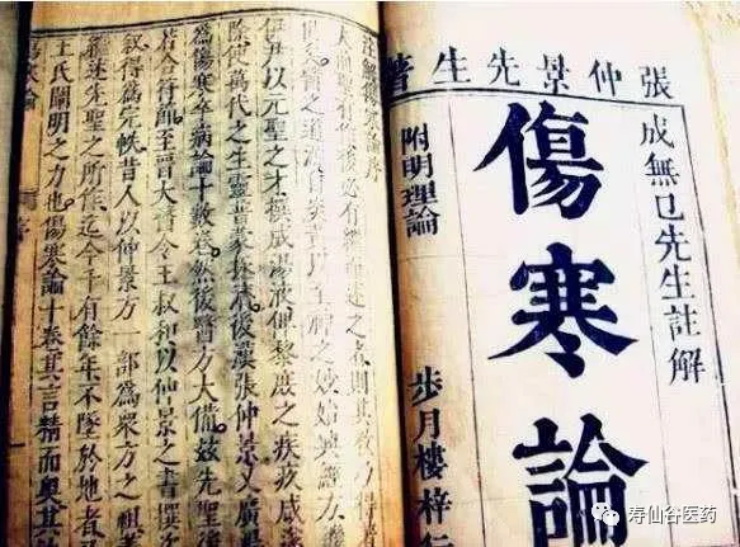 張仲景先生著
成無已先生註解
傷寒論
附明理論
步月樓梓行
注解傷寒論序
夫前聖有作後必有繼而述之者則其教乃得著
之道源自炎黃以至神之妙始興經方
伊尹以元聖之才撰成湯液俾黎庶之疾疢咸
除使萬代之生靈普蒙拯濟後漢張仲景又廣湯
為傷寒卒病論十數卷然後醫方大備茲先聖後
若合符節至晉太醫令王叔和以仲景之書撰次
叙得為完帙昔人以仲景方一部為眾方之祖蓋
能繼述先聖之所作迄今千有餘年不墜於地者
王氏闡明之力也傷寒論十卷其言精而奧其法
傷寒論
序
寿仙谷医药